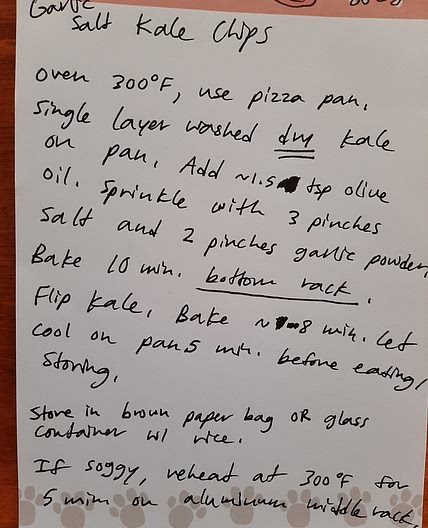 Garlic
Salt Kale Chips
Oven 300°F, use pizza pan.
Single layer washed dry kale
on pan. Add ~1.5 tsp olive
oil. Sprinkle with 3 pinches
salt and 2 pinches garlic powder.
Bake 10 min. bottom rack.
Flip kale. Bake ~ 8 min. Let
cool on pan 5 min. before eating/
storing.
Store in brown paper bag OR glass
container w/ rice.
If soggy, reheat at 300°F for
5 min on aluminum middle rack.